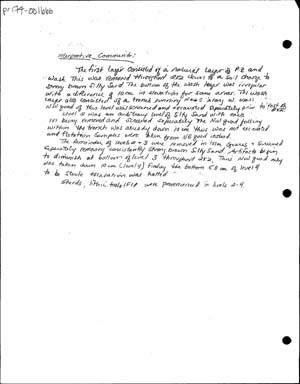 pr174-001666
Interpretive Comments:
The first layer consisted of a natural layer of PZ and
wash. This was removed throughout 2x2 down to a soil change to
strong brown silty sand. The bottom of the wash layer was irregular
with a difference of 10 cm in elevations for some areas. The wash
layer also consisted of a trench running along W. wall.
NW quad of this level was screened and excavated separately prior to rest of 2x2.
Level 2 was an arbitrary level of silty sand with each
1x1 being removed and screened separately. The NW quad
within the trench was already down 10 cm thus was not excavated
and flotation samples were taken from NE quad instead.
The remainder of level 2 + 3 were removed in 1x1m squares + screened
separately removing consistently strong brown silty sand. Artifacts began
to diminish at bottom of level 3 throughout 2x2. Thus NW quad only
was taken down 10 cm (level 4) finding the bottom 5 cm of level 4
to be sterile excavation was halted.
Sherds, lithic tools/FCR were predominant in levels 2-4.